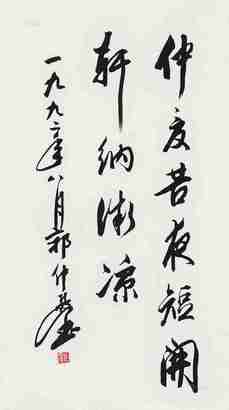 仲夏苦夜短開
軒納微凉
一九九二年八月郭仲選